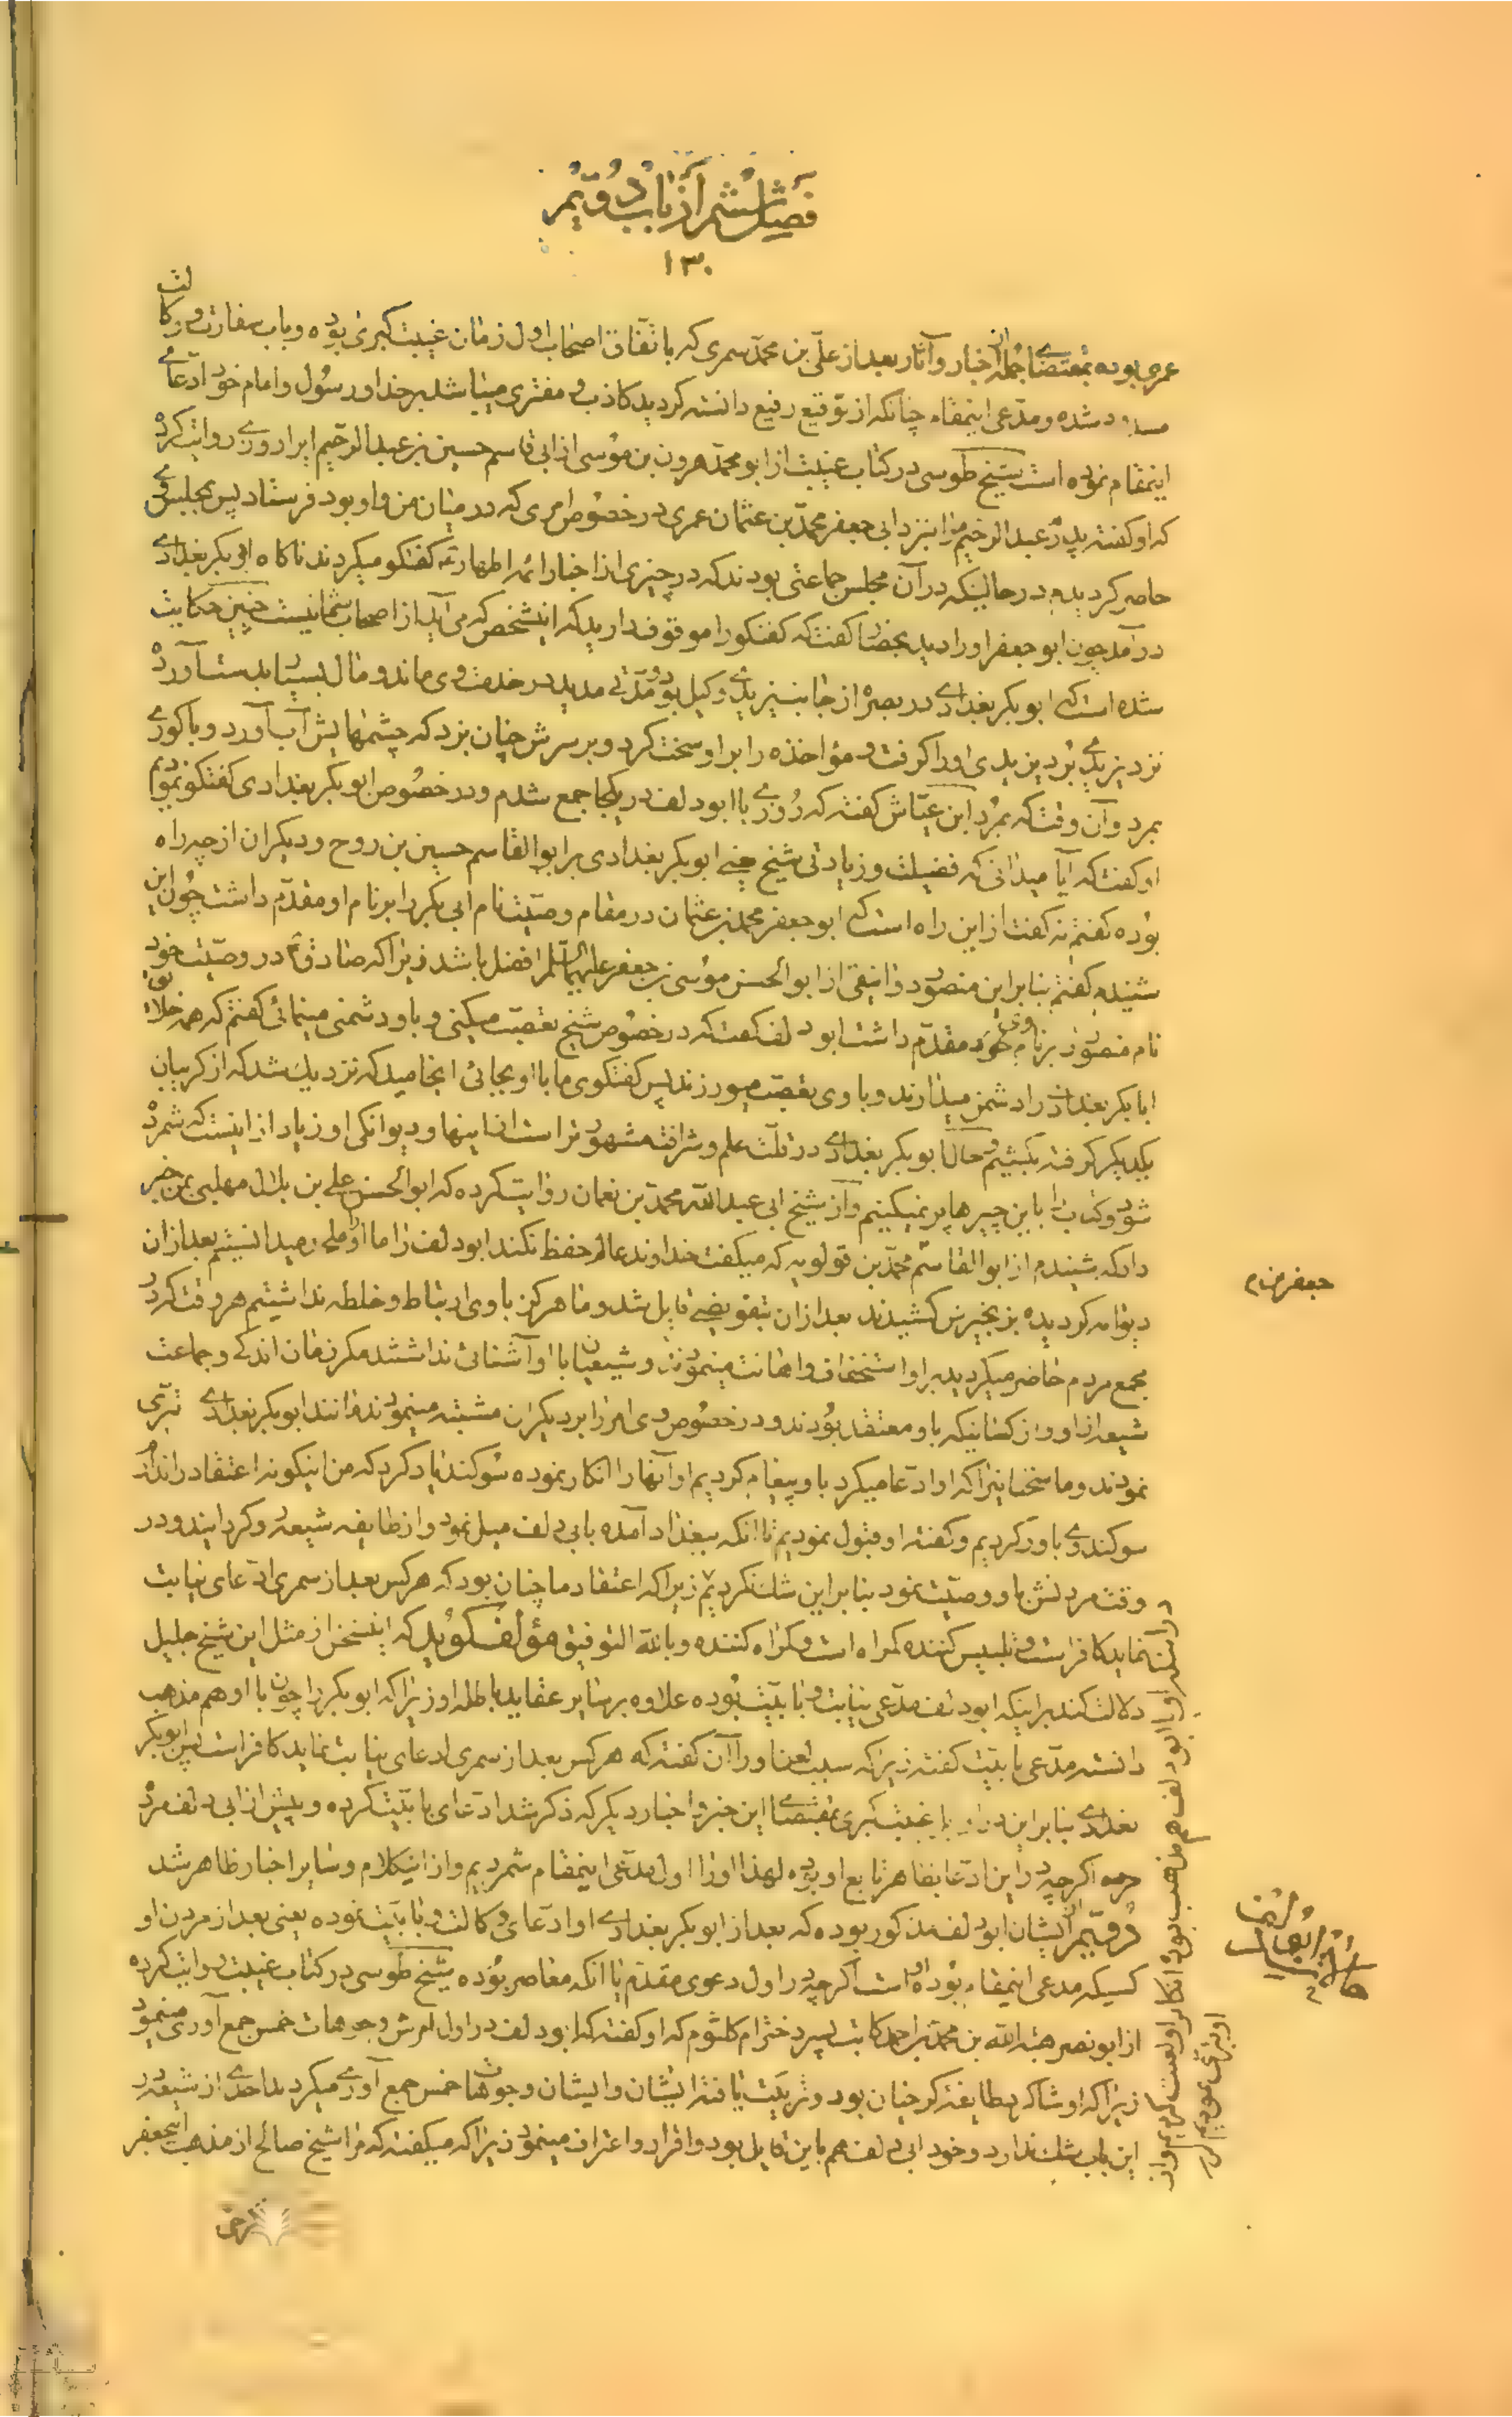 فصل ششم از باب دویم
۱۳۰
عمری بوده بمقتضای جمله اخبار و آثار بعد از علی بن محمد سمری که باتفاق اصحاب اول زمان غیبت کبری بوده و باب سفارت و وکالت
مسدود شده و مدعی اینمقام چنانکه از توقیع رفیع دانسته کردید کاذب و مفتری میباشد بر خدا و رسول و امام خود ادعای
اینمقام نموده است شیخ طوسی در کتاب غیبت از ابو محمد هرون بن موسی از ابی قاسم حسین بن عبد الرحیم ابراروری روایت کرده
که او کفته پدرم عبد الرحیم مرا بنزد ابی جعفر محمد بن عثمان عمری در خصوص امری که در میان من و او بود فرستاد پس بمجلس وی
حاضر کردیدم در حالتیکه در آن مجلس جماعتی بودند که در چیزی از اخبار ائمه اطهار ع کفتکو میکردند ناکاه ابو بکر بغدادی
در آمد چون ابو جعفر او را دید بحضار کفت که کفتکو را موقوف دارید که اینشخص که می آید از اصحاب شما نیست چنین حکایت
شده است که ابو بکر بغدادی در بصره از جانب یزیدی وکیل بود و مدتی مدید در خدمت وی ماند و مال بسیار بدست آورد
نزد یزیدی برد یزیدی او را کرفت و مؤاخذه را بر او سخت کرد و بر سرش چنان بزد که چشمهایش آب آورد و با کوری
بمرد و آن وقت که بمرد ابن عیاش کفته که روزی با ابو دلف در یکجا جمع شدم و در خصوص ابو بکر بغدادی کفتکو نمودیم
او کفت که آیا میدانی که فضیلت و زیادتی شیخ یعنی ابو بکر بغدادی بر ابو القاسم حسین بن روح و دیکران از چه راه
بوده کفتم نه کفت از این راه است که ابو جعفر محمد بن عثمان در مقام وصیت نام ابی بکر را بر نام او مقدم داشت چون این
شنیدم کفتم بنا بر این منصور دوانیقی از ابو الحسن موسی بن جعفر علیهما السلام افضل باشد زیرا که صادق ع در وصیت خود
نام منصور بر نام وی مقدم داشت ابو دلف کفت که در خصوص شیخ تعصب میکنی و با او دشمنی مینمائی کفتم که همه خلایق
ابا بکر بغدادی را دشمن میدارند و با وی تعصب میورزند پس کفتکوی ما با او بجائی انجامید که نزدیک شد که از کریبان
یکدیکر کرفته بکشیم و حال ابو بکر بغدادی در قلت علم و شرافت مشهور تر است از اینها و دیوانکی او زیاد از اینست که شمرده
شود و کتاب را باین چیزها پر نمیکنیم و از شیخ ابی عبد الله محمد بن نعمان روایت کرده که ابو الحسن علی بن بلال مهلبی بمن خبر
داد که شنیدم از ابو القاسم محمد بن قولویه که میکفت خداوند عالم حفظ نکند ابو دلف را ما او را ملحد میدانستیم بعد از آن
دیوانه کردیده بزنجیرش کشیدند بعد از آن بتفویض قایل شد و ما هرکز با وی ارتباط و خلطه نداشتیم هر وقت که در
مجمع مردم حاضر میکردید بر او استخفاف و اهانت مینمودند و شیعیان با او آشنائی نداشتند مکر زمان اندکی و جماعت
شیعه از او و از کسانیکه باو معتقد بودند و در خصوص وی امر را بر دیکران مشتبه مینمودند مانند ابو بکر بغدادی تبری
نمودند و ما سخنانیرا که او ادعا میکرد باو پیغام کردیم او آنها را انکار نموده سوکند یاد کرد که من اینکونه اعتقاد را ندارم
سوکند وی باور کردیم و کفته او قبول نمودیم تا انکه ببغداد آمده بابی دلف میل نمود و از طایفه شیعه رو کردانید و در
وقت مردنش باو وصیت نمود بنا بر این شک نکردیم زیرا که اعتقاد ما چنان بود که هر کس بعد از سمری ادعای نیابت
نماید کافر است و تلبیس کننده کمراه است و کمراه کننده و بالله التوفیق مؤلف کوید که اینسخن از مثل این شیخ جلیل
دلالت کند بر اینکه ابو دلف مدعی نیابت و بابیت بوده علاوه بر سایر عقاید باطله او زیرا که ابو بکر را چون با او هم مذهب
دانسته مدعی بابیت کفته زیرا که سبب لعن او را آن کفته که هر کس بعد از سمری ادعای نیابت نماید کافر است پس ابو بکر
بغدادی بنا بر این در غیبت کبری بمقتضای این خبر و اخبار دیکر که ذکر شد ادعای بابیت کرده و پیش از ابی دلف مرده
اکر چه در این ادعا بظاهر تابع او بوده لهذا او را اول مدعی اینمقام شمردیم و از اینکلام و سایر اخبار ظاهر شد
دویم ایشان ابو دلف مذکور بوده که بعد از ابو بکر بغدادی او ادعای وکالت و بابیت نموده یعنی بعد از مردن او
کسیکه مدعی اینمقام بوده او است اکر چه در اول دعوی مقدم یا انکه معاصر بوده شیخ طوسی در کتاب غیبت روایت کرده
از ابو نصر هبة الله بن محمد بن احمد کاتب پسر دختر ام کلثوم که او کفته که ابو دلف در اول امرش وجوهات خمس جمع آوری مینمود
زیرا که او شاکرد طایفه کرخیان بود و تربیت یافته ایشان و ایشان وجوهات خمس جمع آوری میکردند احدی از شیعه در
این باب شک ندارد و خود ابی دلف هم باین قایل بود و اقرار و اعتراف مینمود زیرا که میکفته که مرا شیخ صالح از مذهب ابیجعفر
جعفر بن م
ابو دلف هم مذهب بود انکار او لعنت کردیم و از
او تبری نمودیم